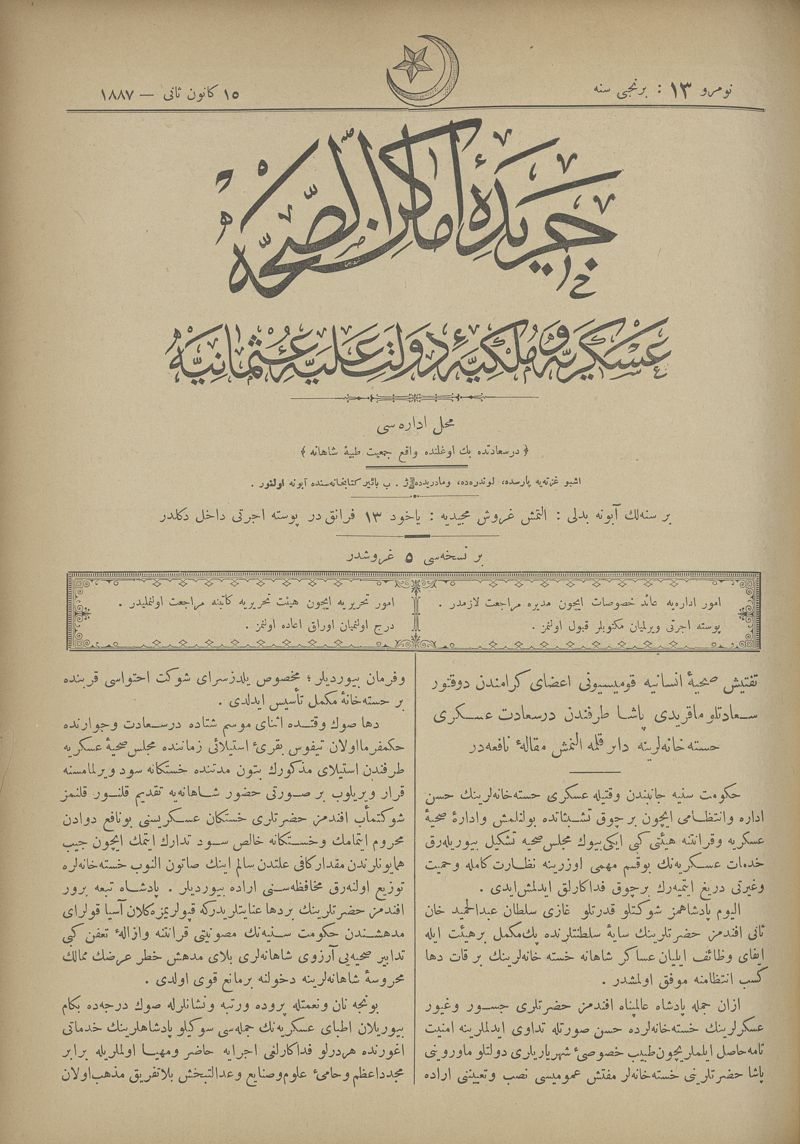 نومرو ١٣ : برنجى سنه
١٥ كانون ثانى — ١٨٨٧
جريدهٔ اماكن الصحّه
عسكريه و ملكيهٔ دولت عليهٔ عثمانيه
محل اداره سى
﴿ درسعادتده بك اوغلنده واقع جمعيت طبيهٔ شاهانه ﴾
اشبو غزته‌يه پارسده، لوندره‌ده، ومادريدده ژ . ب بائير كتابخانه‌سنده آبونه اولنور .
بر سنه‌لك آبونه بدلى : التمش غروش مجيديه : ياخود ١٣ فرانق در پوسته اجرتى داخل دكلدر
بر نسخه‌سى ٥ غروشدر
امور اداريه يه عائد خصوصات ايچون مديره مراجعت لازمدر .
پوسته اجرتى ويرلميان مكتوبلر قبول اولنمز .
امور تحريريه ايچون هيئت تحريريه كاتبنه مراجعت اولنمليدر .
درج اولنميان اوراق اعاده اولنمز .
تفتيش صحيهٔ انسانيه قوميسيونى اعضاى كرامندن دوقتور
سعادتلو ماقريدى پاشا طرفندن درسعادت عسكرى
خسته خانه‌لرينه دائر قلمه النمش مقالهٔ نافعه‌در
حكومت سنيه جانبندن وقتيله عسكرى خسته‌خانه‌لرينك حسن
اداره وانتظامى ايچون برچوق تشبثاتده بولنلمش وادارهٔ صحيهٔ
عسكريه وقرانتنه هيئتى كبى ايكى بيوك مجلس صحيه تشكيل بيوريله‌رق
خدمات عسكريه‌نك بوقسم مهمى اوزرينه نظارت كامله وحميت
وغيرتى دريغ ايتميه‌رك برچوق فداكارلق ايدلمش‌ايدى .
اليوم پادشاهمز شوكتلو قدرتلو غازى سلطان عبدالحميد خان
ثانى افندمز حضرتلرينك سايهٔ سلطنتلرنده پك‌مكمل برهيئت ايله
ايفاى وظائف ايليان عساكر شاهانه خسته خانه‌لرينك بر قات دها
كسب انتظامنه موفق اولمشدر .
ازان جمله پادشاه عالمپناه افندمز حضرتلرى جسور وغيور
عسكرلرينك خسته‌خانه‌لرده حسن صورتله تداوى ايدلملرينه امنيت
تامه‌حاصل ايلمارى‌چون‌طبيب خصوصىٔ شهرياريلرى دولتلو ماورونى
پاشا حضرتلرينى خسته‌خانه‌لر مفتش عموميسى نصب وتعيينى اراده
وفرمان بيورديلر ؛ مخصوص يلدزسراى شوكت احتواسى قربنده
بر خسته‌خانهٔ مكمل تأسيس ايدلدى .
دها صوك وقتده اثناى موسم شتاده درسعادت وجوارنده
حكمفرمااولان تيفوس بقرىٔ استيلائى زماننده مجلس‌صحيهٔ عسكريه
طرفندن استيلاى مذكورك بتون مدتنده خستكانه سود ويرلمامسنه
قرار ويريلوب بر صورتى حضور شاهانه‌يه تقديم قلنور قلنمز
شوكتمأب افندمز حضرتلرى خستكان عسكريسنى بونافع دوادن
محروم ايتمامك وخستكانه خالص سود تدارك ايتمك ايچون جيب
هايونلرندن مقداركافى علتدن سالم اينك صاتون النوب خسته‌خانه‌لره
توزيع اولنه‌رق محافظه‌سنى اراده بيورديلر . پادشاه تبعه پرور
افندمز حضرتلرينك بردها عنايتلريدركه قپولريمزه‌كلان آسيا قولراى
مدهشندن حكومت سنيه‌نك مصونيتى قرانتنه وازالهٔ تعفن كبى
تدابير صحيه‌يى آرزوى شاهانه‌لرى بلاى مدهش خطر عرضك ممالك
محروسهٔ شاهانه‌لرينه دخولنه برمانع قوى اولدى .
بونجه نان ونعمتله پرورده ورتبه ونشانلرله صوك درجه‌ده بكام
بيوريلان اطباى عسكريه‌نك جمله‌سى سوكيلو پادشاهلرينك خدماتى
اغورنده هردرلو فداكارلغى اجرايه حاضر ومهيا اولملريله برابر
مجدداعظم وحامىٔ علوم‌وصنايع وعدالتبخش بلاتفريق مذهب‌اولان